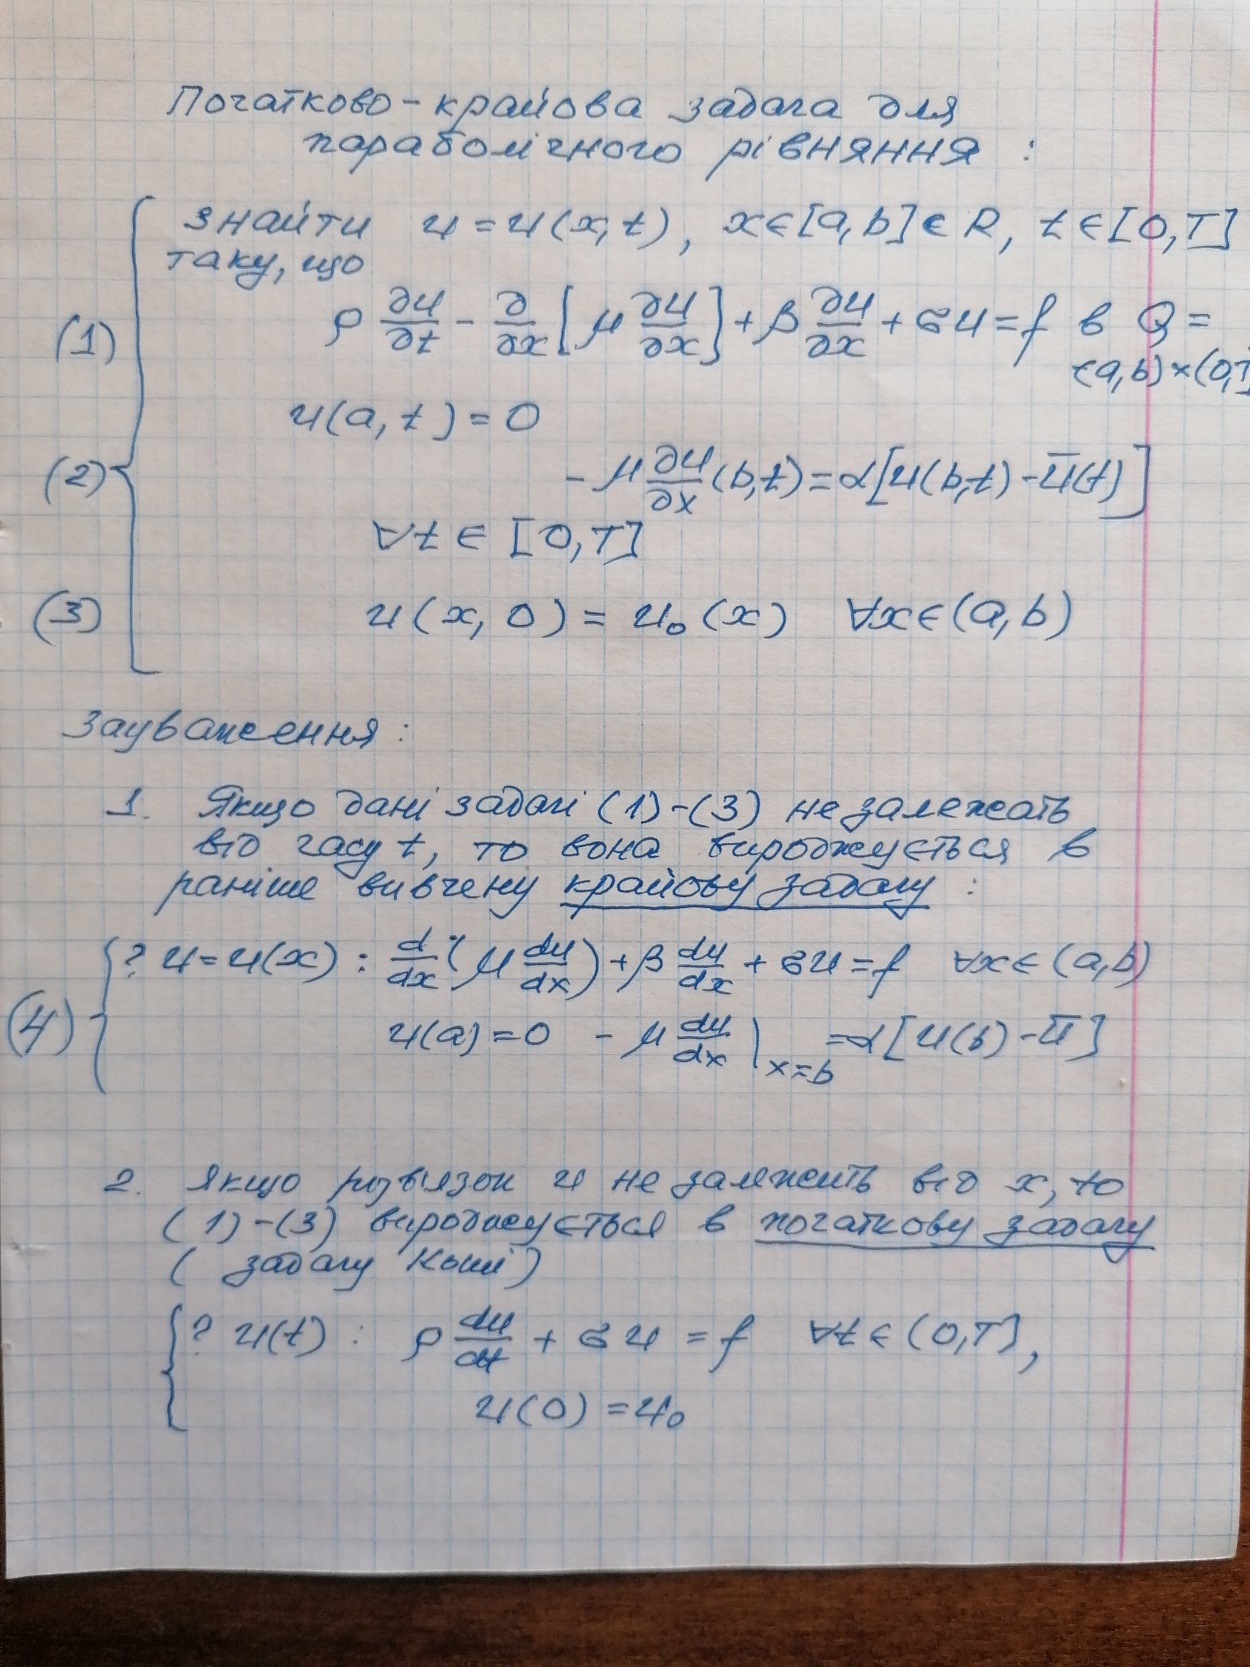 Початково-крайова задача для
параболічного рівняння :
знайти u = u(x,t), x∈[a,b]∈R, t∈[0,T]
таку, що
(1) ρ ∂u/∂t - ∂/∂x [μ ∂u/∂x] + β ∂u/∂x + σu = f в Q =
(a,b)×(0,T]
u(a,t) = 0
(2) - μ ∂u/∂x (b,t) = α[u(b,t) - ū(t)]
∀t ∈ [0,T]
(3) u(x,0) = u₀(x) ∀x∈(a,b)
Зауваження :
1. Якщо дані задачі (1)-(3) не залежать
від часу t, то вона вироджується в
раніше вивчену крайову задачу :
? u = u(x) : d/dx (μ du/dx) + β du/dx + σu = f ∀x∈(a,b)
(4) u(a) = 0 - μ du/dx |x=b = α[u(b) - ū]
2. Якщо розв'язок u не залежить від x, то
(1)-(3) вироджується в початкову задачу
( задачу Коші)
? u(t) : ρ du/dt + σu = f ∀t∈(0,T],
u(0) = u₀